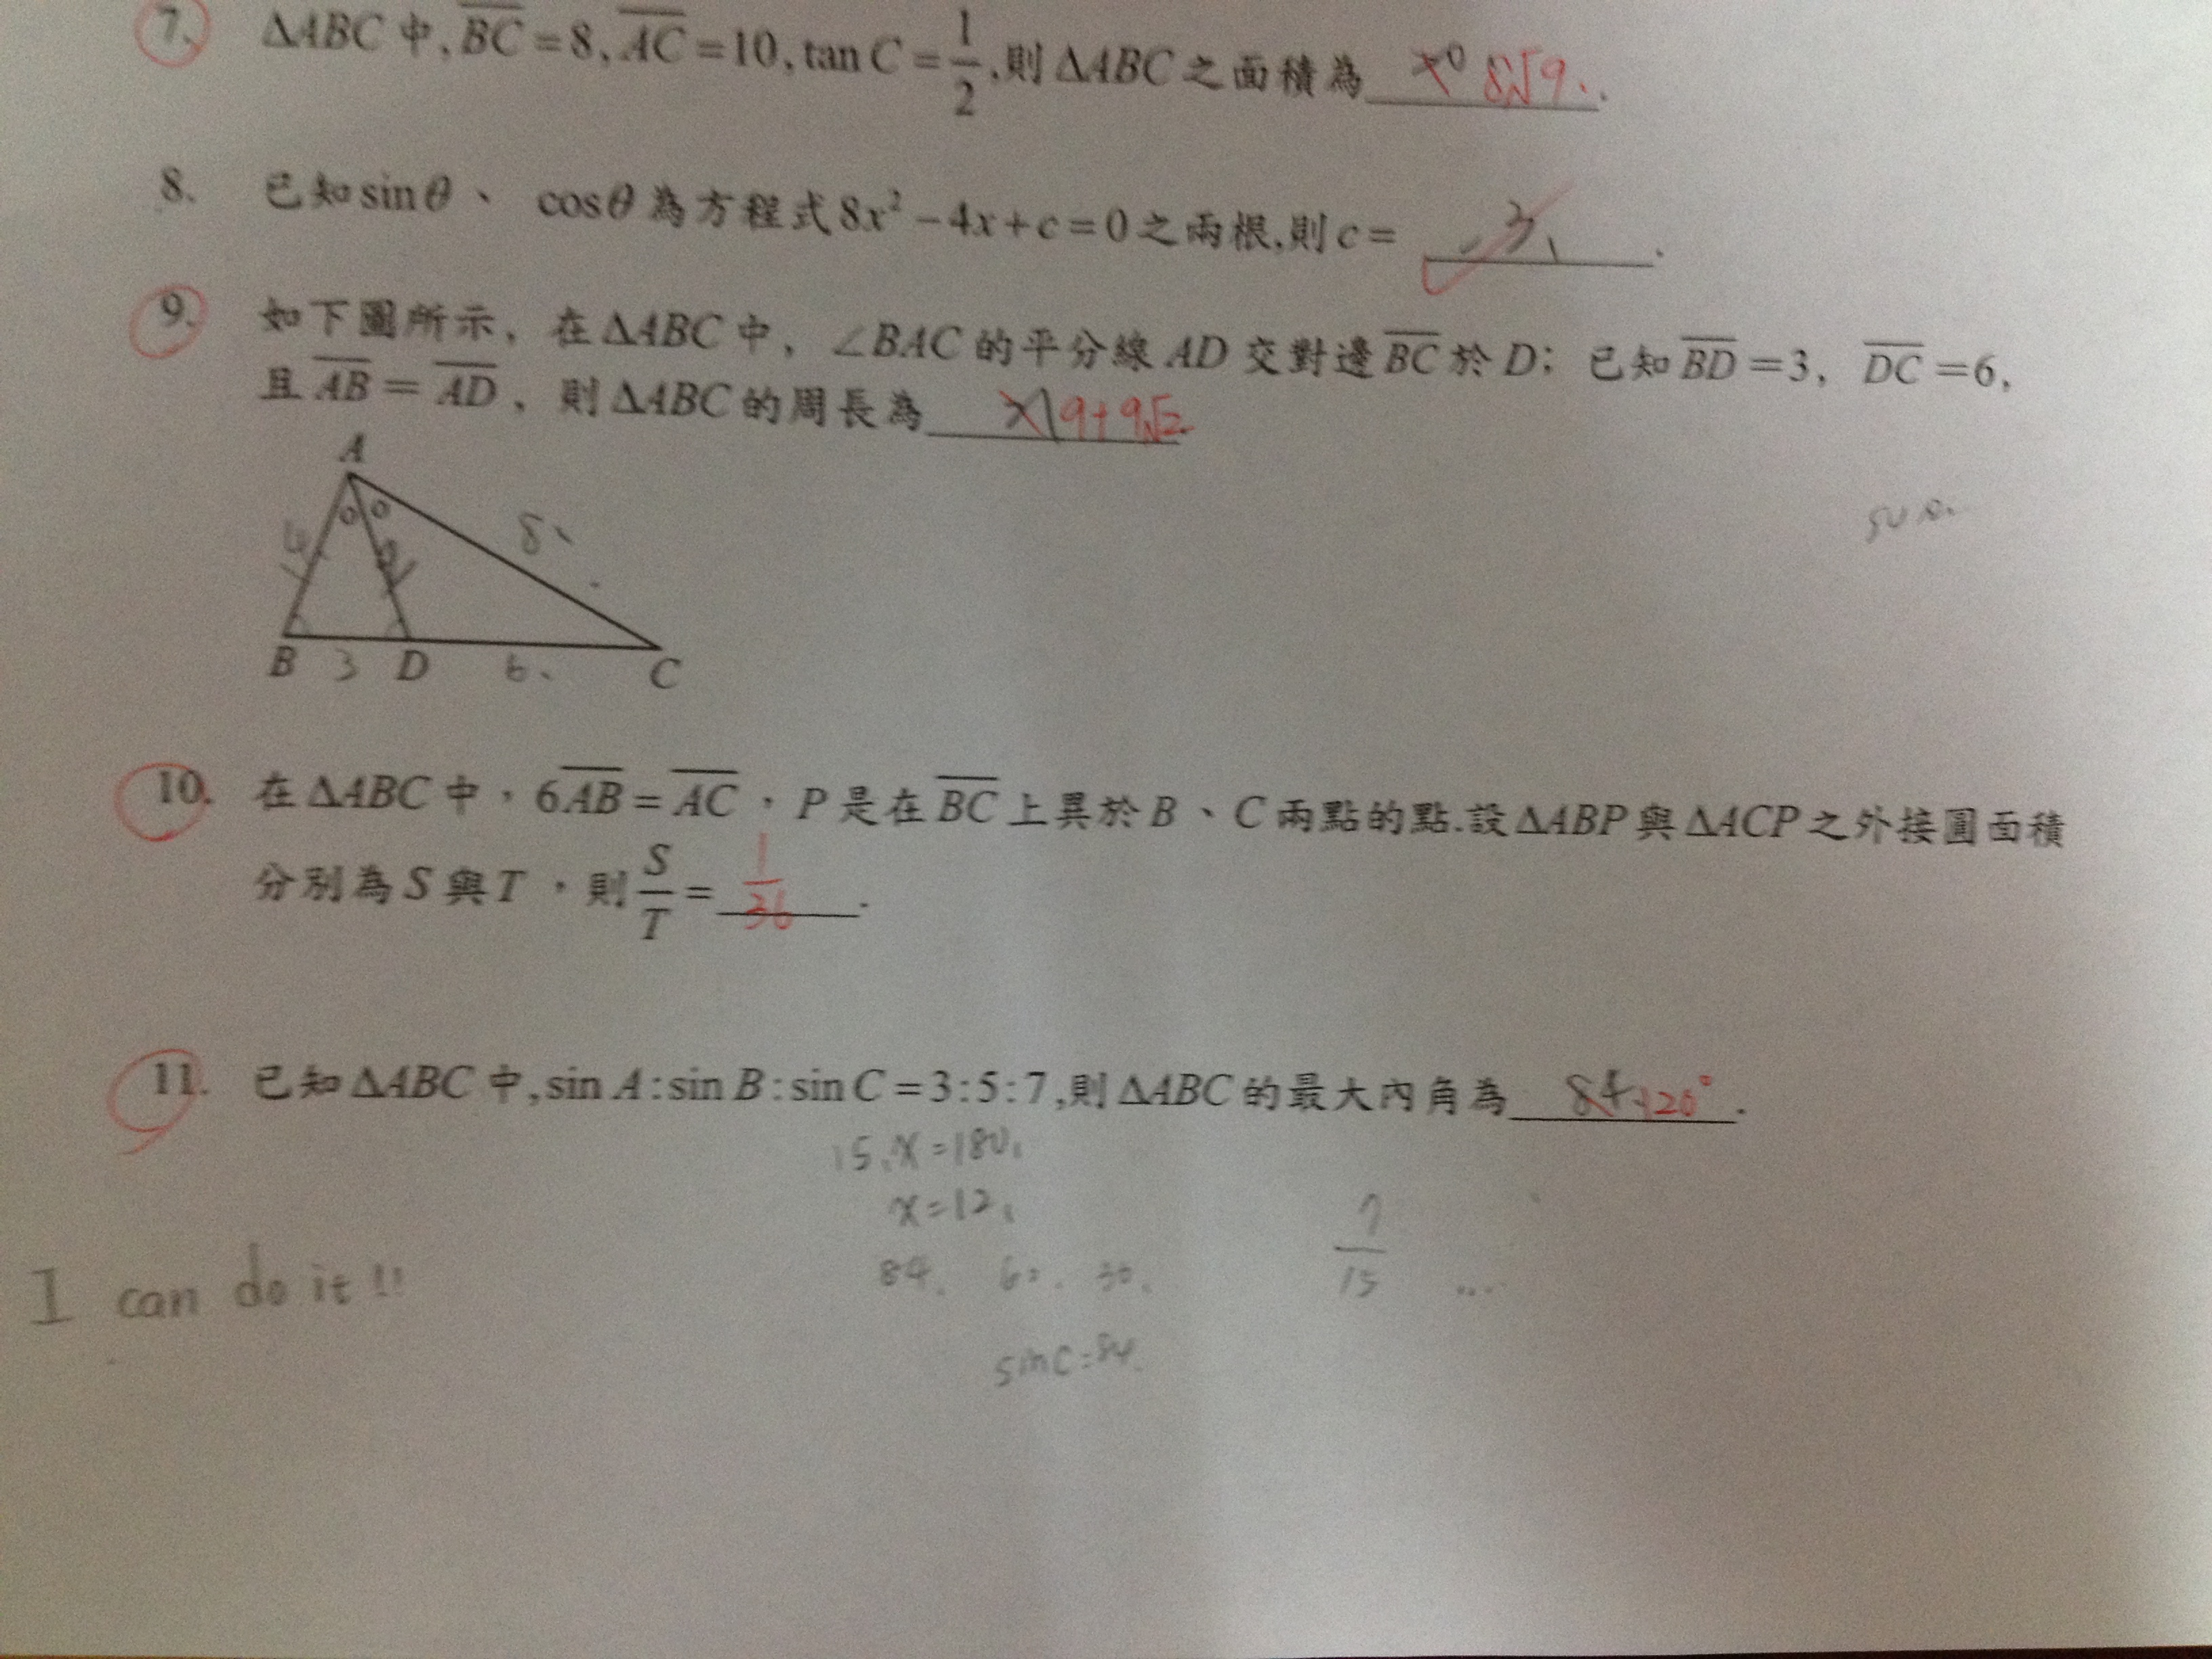 7. ΔABC 中, BC = 8, AC = 10, tan C = 1/2, 則 ΔABC 之面積為 8√9.
8. 已知 sinθ、 cosθ 為方程式 8x² − 4x + c = 0 之兩根, 則 c = -3.
9. 如下圖所示, 在 ΔABC 中, ∠BAC 的平分線 AD 交對邊 BC 於 D; 已知 BD = 3, DC = 6,
且 AB = AD, 則 ΔABC 的周長為 9+9√2
A
8
B 3 D 6 C
10. 在 ΔABC 中,6AB = AC,P 是在 BC 上異於 B、C 兩點的點.設 ΔABP 與 ΔACP 之外接圓面積
分別為 S 與 T,則 S/T = 1/36.
11. 已知 ΔABC 中, sin A : sin B : sin C = 3 : 5 : 7, 則 ΔABC 的最大內角為 84 120°.
15x=180
x=12
84. 60. 7/15 ....
I can do it!!
sinC=84.